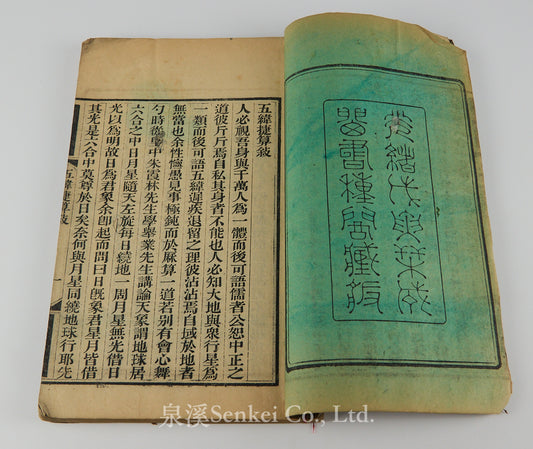 光緒戊寅栞成
留書種閣藏板
五緯捷算敍
人必視吾身與千萬人為一體而後可語儒者公恕中正之
道彼斤斤焉自私其身者不能也人必知大地與衆行星為
一類而後可語五緯遲疾退留之理彼沾沾焉自域於地者
無當也余性愚見事極鈍而於厤算一道若別有會心舞
勺時從里中朱霞林先生學舉業先生講論天象謂地球居
六合之中日月星隨天左旋每日繞地一周月星無光借日
光以為明故日為君象余卽起而問曰日旣象君星月皆借
其光是六合中莫尊於日矣奈何與月星同繞地球行耶先
五緯捷算敍
一
泉溪Senkei Co., Ltd.